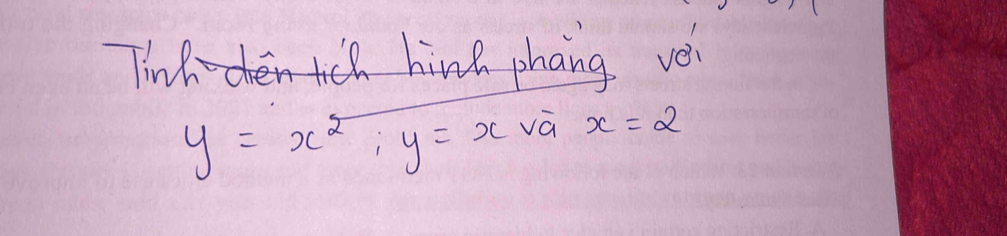 Tính diện tích hình phẳng với
y = x², y = x và x = 2